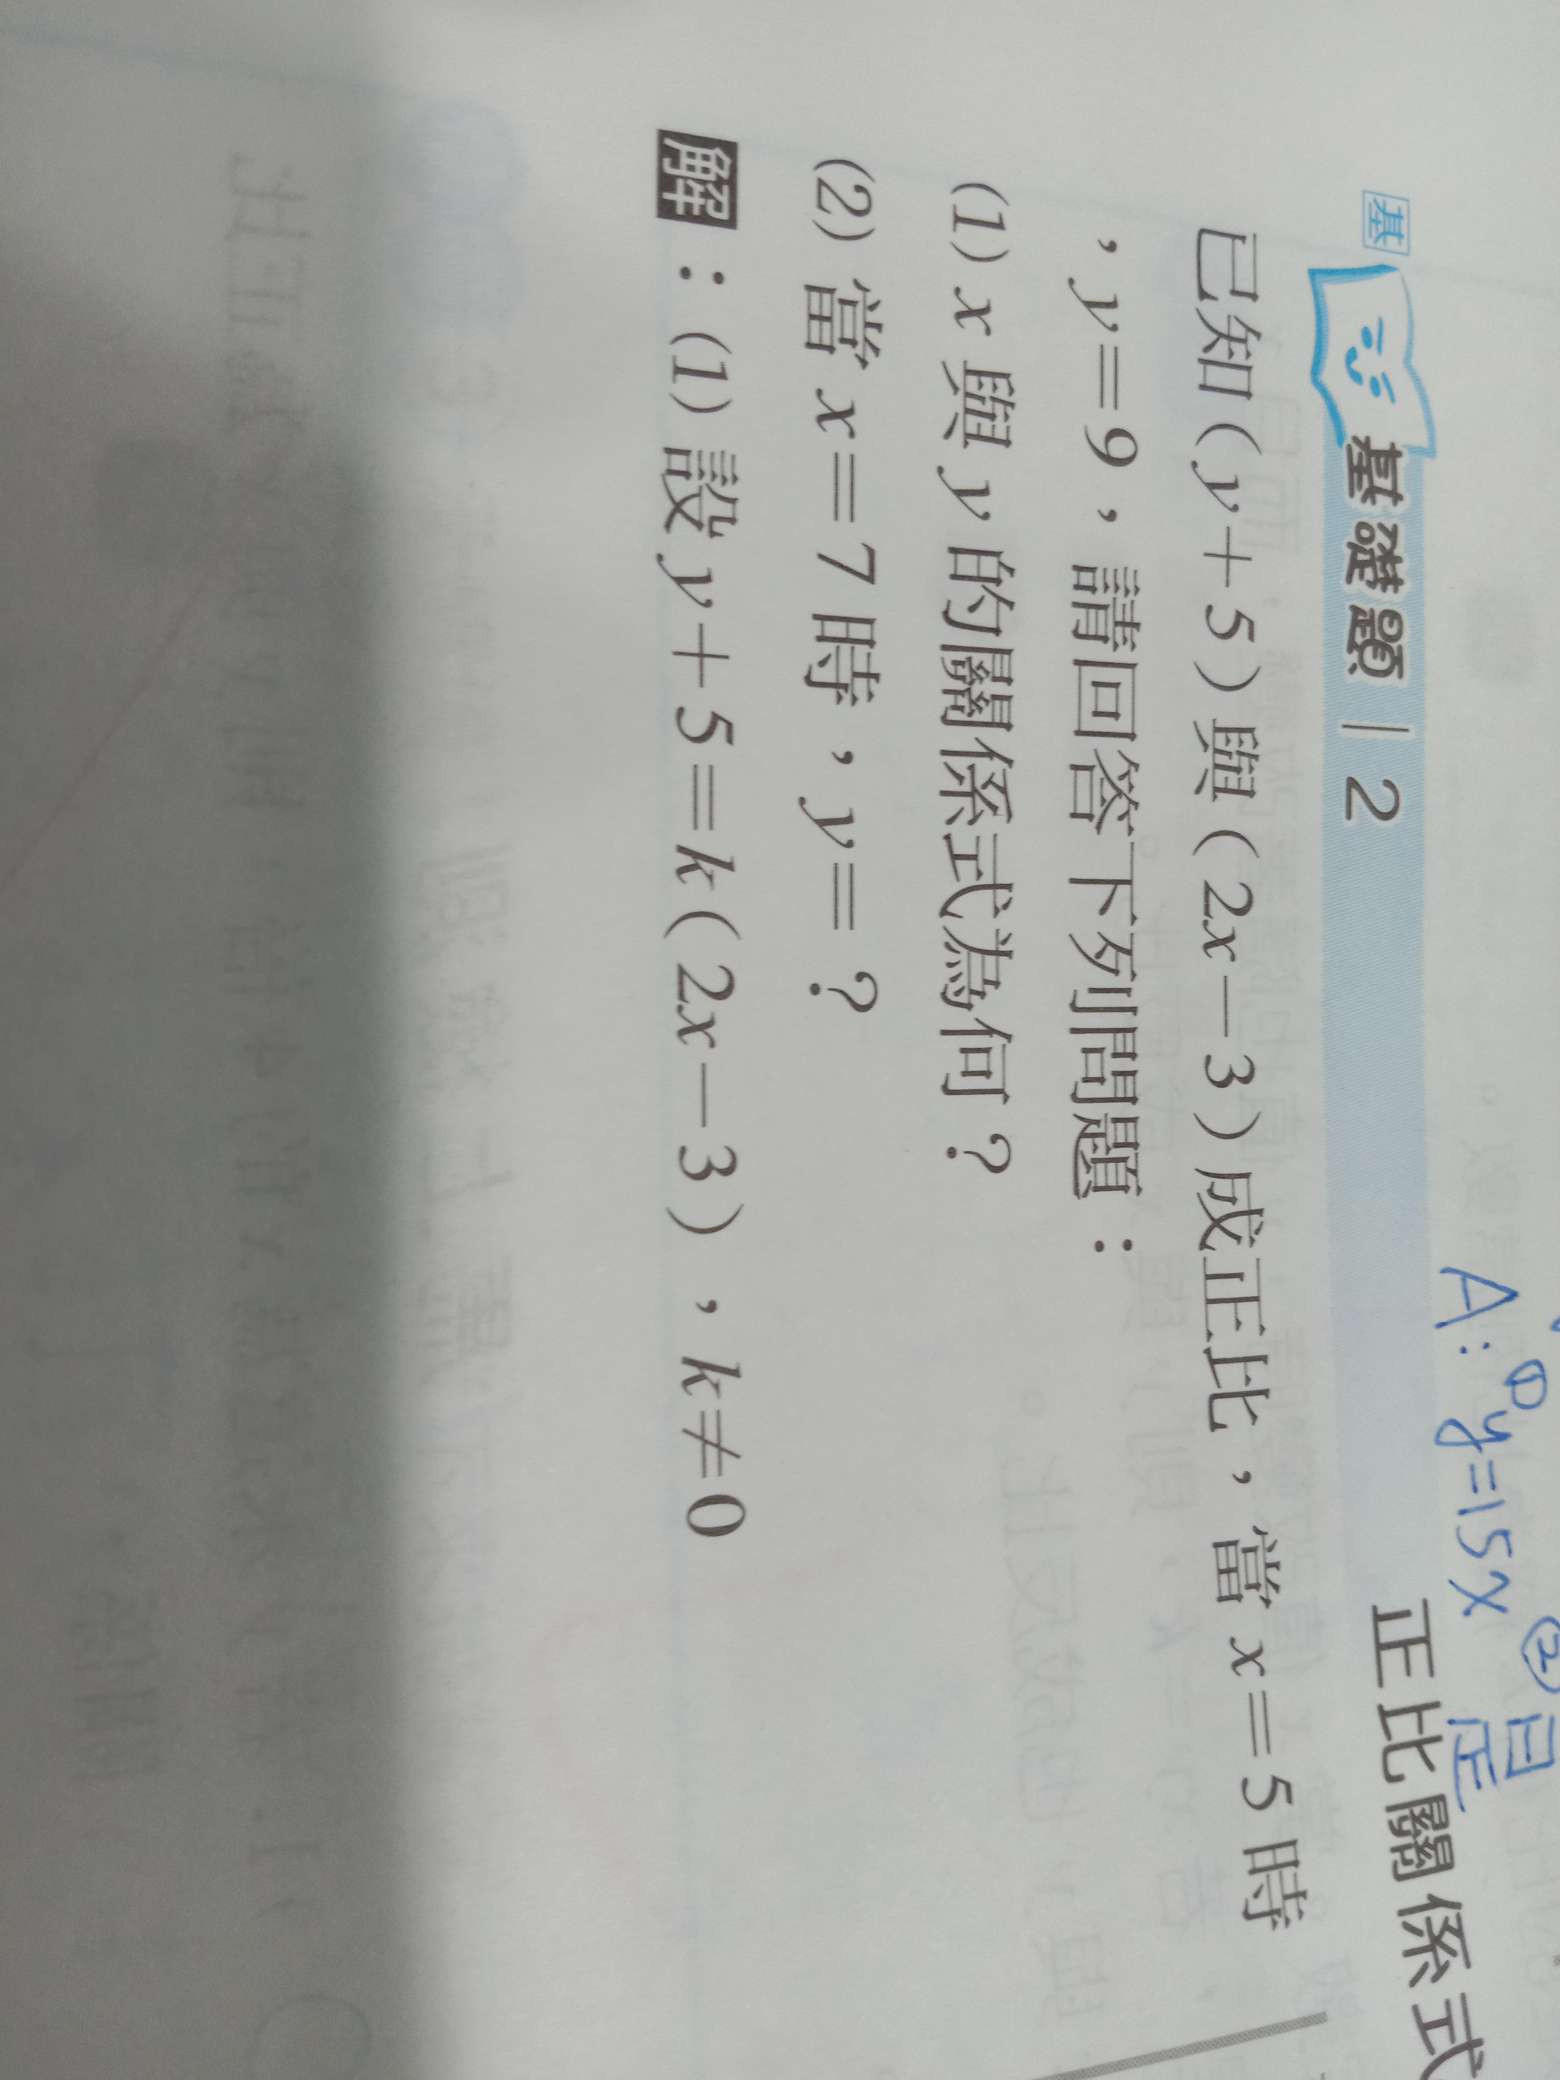 A：① y=15x ② 是正
正比關係式
基 基礎題 | 2
已知（y+5）與（2x－3）成正比，當 x=5 時
，y=9，請回答下列問題：
(1) x 與 y 的關係式為何？
(2) 當 x=7 時，y=？
解：(1) 設 y+5=k（2x－3），k≠0